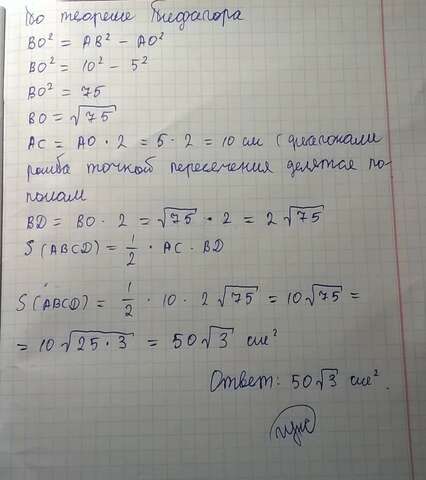 По теореме Пифагора
BO² = AB² - AO²
BO² = 10² - 5²
BO² = 75
BO = √75
AC = AO · 2 = 5 · 2 = 10 см (диагонали
ромба точкой пересечения делятся по-
полам
BD = BO · 2 = √75 · 2 = 2√75
S (ABCD) = 1/2 · AC · BD
S (ABCD) = 1/2 · 10 · 2√75 = 10√75 =
= 10√25 · 3 = 50√3 см²
Ответ: 50√3 см².